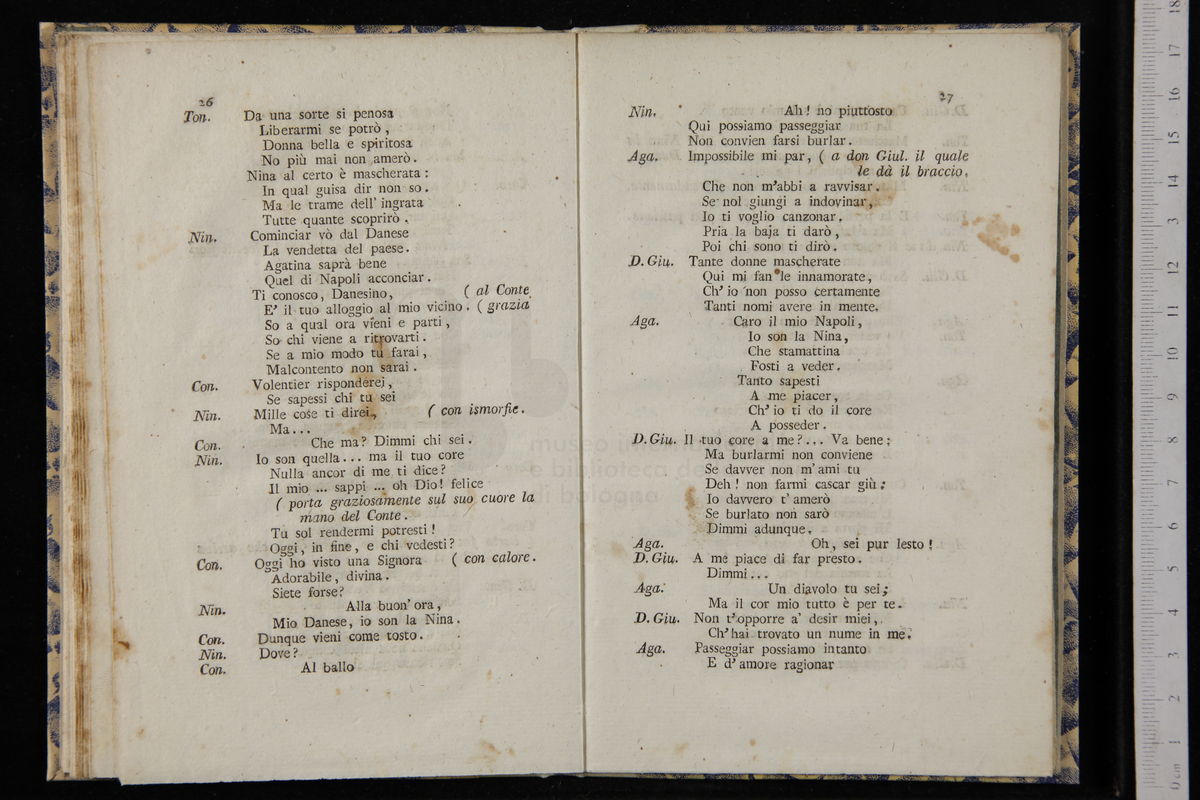 26
Ton. Da una sorte si penosa
Liberarmi se potrò ,
Donna bella e spiritosa
No più mai non amerò.
Nina al certo è mascherata :
In qual guisa dir non so .
Ma le trame dell' ingrata
Tutte quante scoprirò .
Nin. Cominciar vò dal Danese
La vendetta del paese .
Agatina saprà bene
Quel di Napoli acconciar .
Ti conosco, Danesino, ( al Conte
E' il tuo alloggio al mio vicino . ( grazia
So a qual ora vieni e parti ,
So chi viene a ritrovarti .
Se a mio modo tu farai ,
Malcontento non sarai .
Con. Volentier risponderei ,
Se sapessi chi tu sei
Nin. Mille cose ti direi , ( con ismorfie .
Ma . . .
Con. Che ma? Dimmi chi sei .
Nin. Io son quella . . . ma il tuo core
Nulla ancor di me ti dice ?
Il mio ... sappi ... oh Dio! felice
( porta graziosamente sul suo cuore la
mano del Conte .
Tu sol rendermi potresti !
Oggi , in fine , e chi vedesti ?
Con. Oggi ho visto una Signora ( con calore .
Adorabile , divina .
Siete forse?
Nin. Alla buon' ora ,
Mio Danese, io son la Nina .
Con. Dunque vieni come tosto .
Nin. Dove ?
Con. Al ballo
27
Nin. Ah ! no piuttosto
Qui possiamo passeggiar
Non convien farsi burlar .
Aga. Impossibile mi par , ( a don Giul. il quale
le dà il braccio .
Che non m'abbi a ravvisar .
Se nol giungi a indovinar ,
Io ti voglio canzonar .
Pria la baja ti darò ,
Poi chi sono ti dirò .
D. Giu. Tante donne mascherate
Qui mi fan le innamorate ,
Ch' io non posso certamente
Tanti nomi avere in mente .
Aga. Caro il mio Napoli ,
Io son la Nina ,
Che stamattina
Fosti a veder .
Tanto sapesti
A me piacer ,
Ch' io ti do il core
A posseder .
D. Giu. Il tuo core a me ? . . . Va bene ;
Ma burlarmi non conviene
Se davver non m' ami tu
Deh ! non farmi cascar giù :
Io davvero t' amerò
Se burlato non sarò
Dimmi adunque .
Aga. Oh , sei pur lesto !
D. Giu. A me piace di far presto .
Dimmi . . .
Aga. Un diavolo tu sei ;
Ma il cor mio tutto è per te .
D. Giu. Non t'opporre a' desir miei ,
Ch' hai trovato un nume in me .
Aga. Passeggiar possiamo intanto
E d' amore ragionar